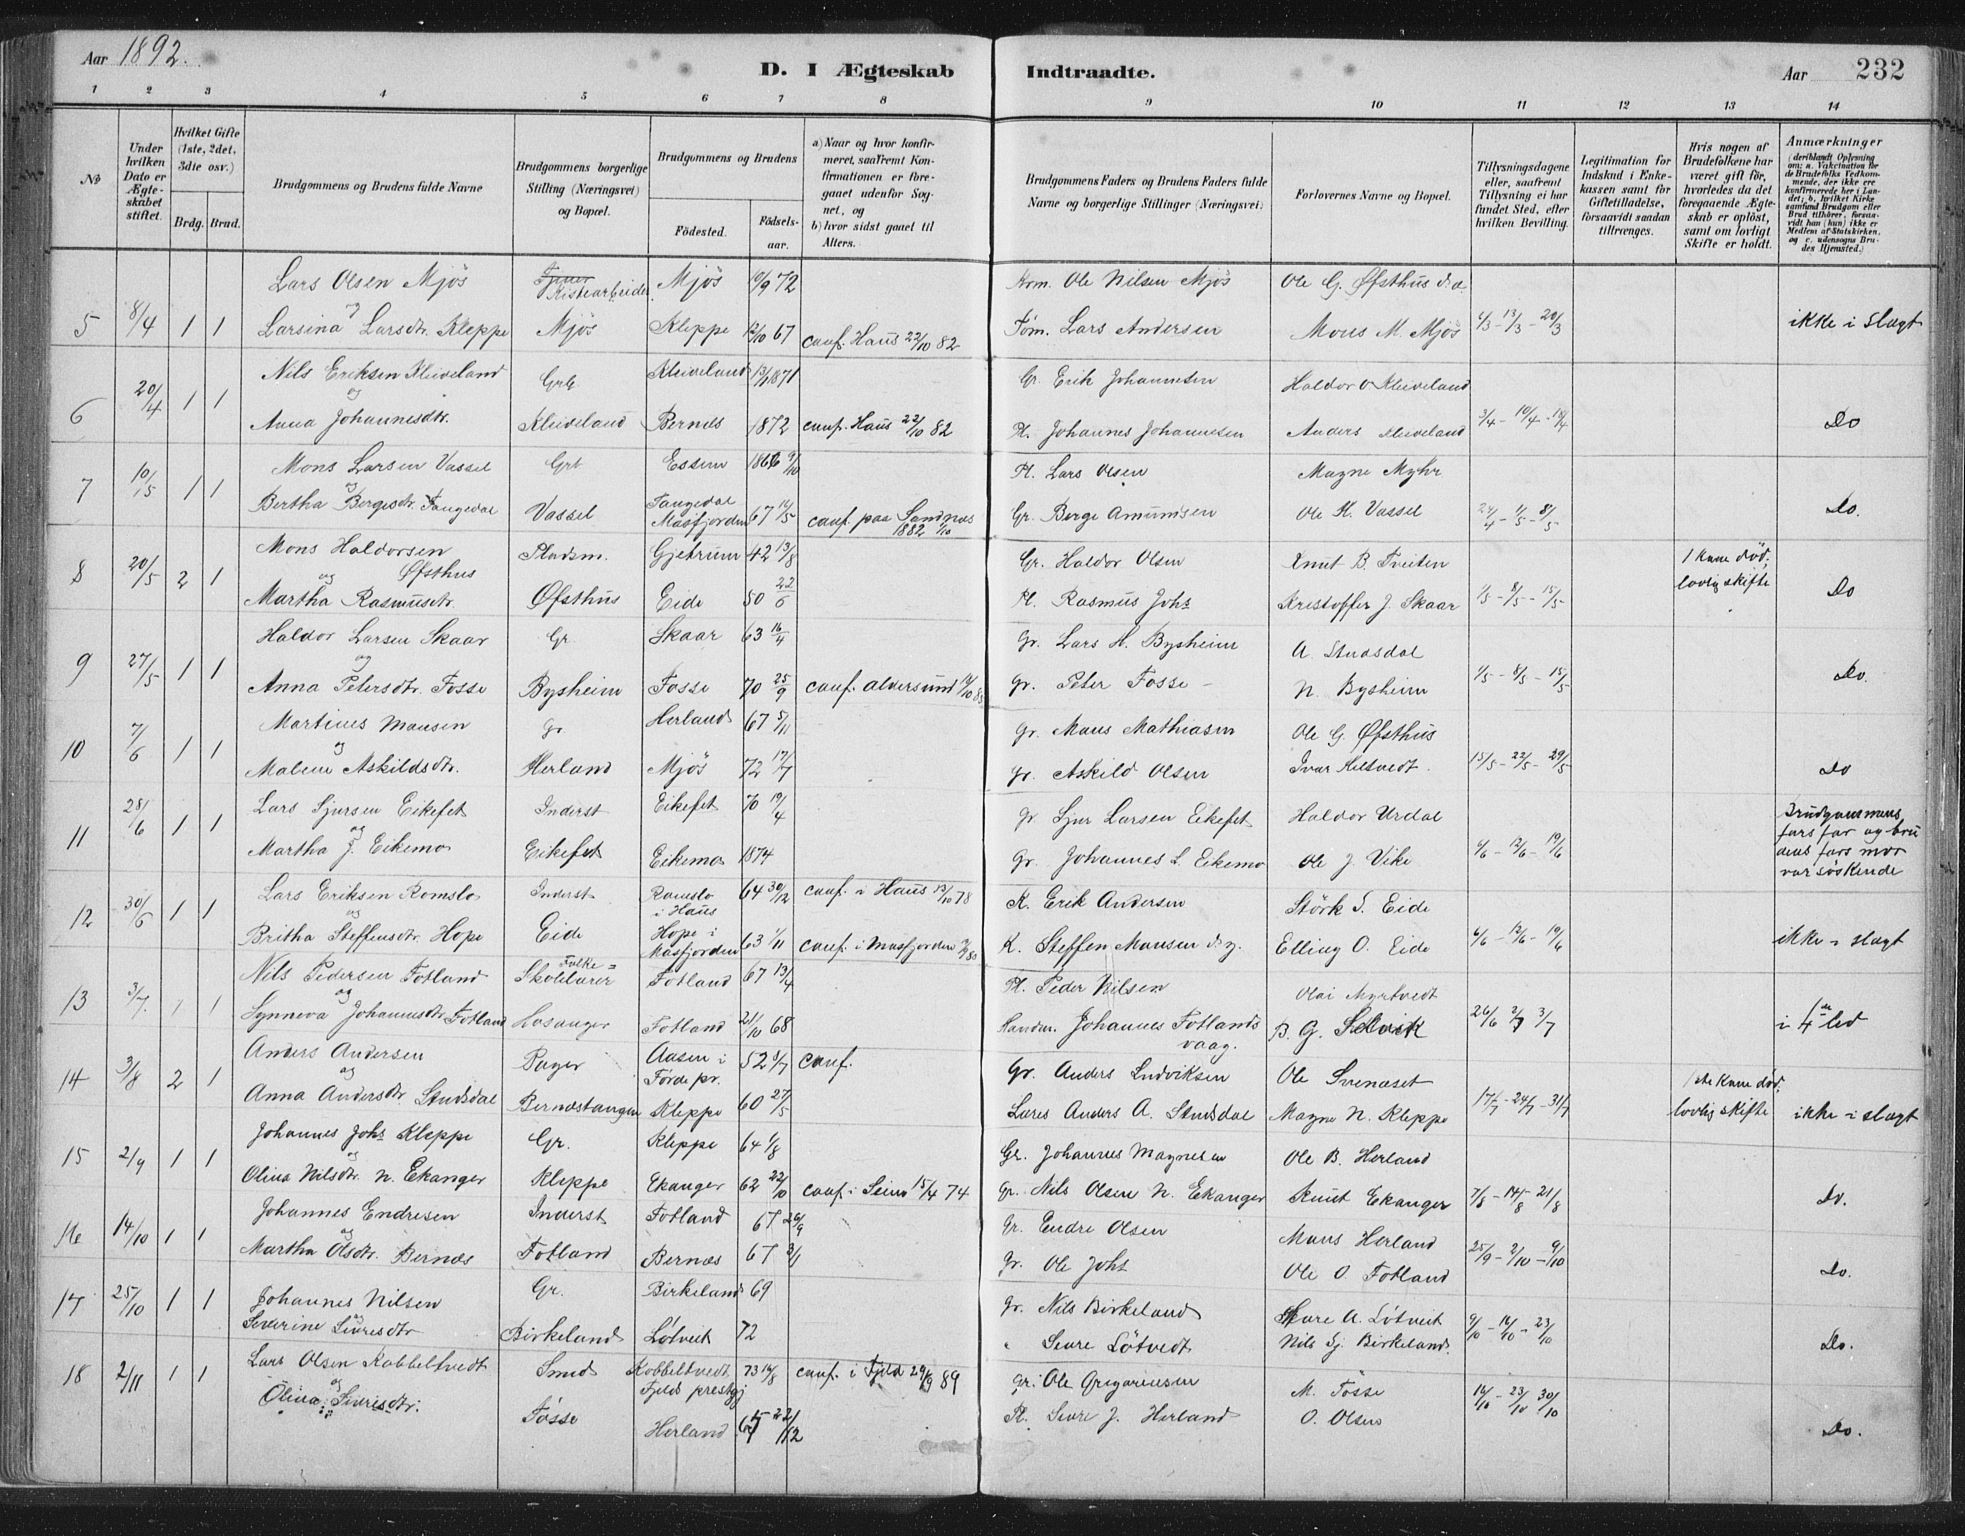 Aar 1892.
D. I Ægteskab Indtraadte.
Aar 232
1 2 3 4 5 6 7 8 9 10 11 12 13 14
No
Under hvilken Dato er Ægteskabet stiftet.
Hvilket Gifte (1ste, 2det, 3die osv.)
Brdg. Brud.
Brudgommens og Brudens fulde Navne
Brudgommens borgerlige Stilling (Næringsvei) og Bopæl.
Brudgommens og Brudens
Fødested. Fødselsaar.
a) Naar og hvor konfirmeret, saafremt Konfirmationen er foregaaet udenfor Sognet, og b) hvor sidst gaaet til Alters.
Brudgommens Faders og Brudens Faders fulde Navne og borgerlige Stillinger (Næringsvei)
Forlovernes Navne og Bopæl.
Tillysningsdagene eller, saafremt Tillysning ei har fundet Sted, efter hvilken Bevilling.
Legitimation for Indskud i Enkekassen samt for Giftetilladelse, forsaavidt saadan tiltrænges.
Hvis nogen af Brudefolkene har været gift før, hvorledes da det foregaaende Ægteskab er opløst, samt om lovligt Skifte er holdt.
Anmærkninger (deriblandt Oplysning om: a. Vakcination for de Brudefolks Vedkommende, der ikke ere konfirmerede her i Landet; b. hvilket Kirkesamfund Brudgom eller Brud tilhører, forsaavidt han (hun) ikke er Medlem af Statskirken, og c. udensogns Brudes Hjemsted.)
Lars Olsen Mjøs Kistearbeider Mjøs 10/9 72 Ole Nilsen Mjøs Ole G. Øfsthus
5 8/4 1 1 og Larsina Larsdtr. Kleppe Mjøs Kleppe 12/10 67 conf. Haus 22/10 82 Tøm. Lars Andersen Mons M. Mjøs 6/3 - 13/3 - 20/3 ikke i slægt
Nils Eriksen Kleiveland Grb Kleiveland 13/1 1871 Gr. Erik Johannesen Haldor O Kleiveland
6 20/4 1 1 og Anna Johannesdtr. Kleiveland Bernes 1872 conf. Haus 22/10 82 Pl. Johannes Johannesen Anders Kleiveland 3/4 - 10/4 - 18/4 Do
Mons Larsen Vassel Grb Essem 1866 9/10 Pl. Lars Olsen Magne Myhr
7 10/5 1 1 og Bertha Bergesdtr. Tangedal Vassel Tangedal Masfjorden 67 16/5 conf. paa Sandnæs 1882 1/10 Gr. Berge Amundsen Ole H. Vassel 24/4 - 1/5 - 8/5 Do.
Mons Haldorsen Øfsthus Pladsm. Gjetrum 42 13/8 Gr. Haldor Olsen Knut B. Tveiten 1 kone død; lovlig skifte
8 20/5 2 1 og Martha Rasmusdtr. Øfsthus Eide 50 22/6 Pl. Rasmus Johs Kristoffer J. Skaar 1/5 - 8/5 - 15/5 Do
Haldor Larsen Skaar Gr. Skaar 63 16/4 Gr. Lars H. Bysheim A. Studsdal
9 27/5 1 1 og Anna Petersdtr. Fosse Bysheim Fosse 70 25/9 conf. Alversund Gr. Peter Fosse N. Bysheim 1/5 - 8/5 - 15/5 Do.
Martines Mansen Gr Herland 67 5/11 Gr. Mans Mathiasen Ole G. Øfsthus
10 7/6 1 1 og Malene Askildsdtr. Herland Mjøs 72 17/7 Gr. Askild Olsen Ivar Kiltvedt. 15/5 - 22/5 - 29/5 Do
Lars Sjursen Eikefet Inderst Eikefet 70 19/4 Gr Sjur Larsen Eikefet Haldor Urdal
11 28/6 1 1 og Martha J. Eikemo Eikefet Eikemo 1874 Gr. Johannes L. Eikemo Ole J. Vike 6/6 - 12/6 - 19/6 Brudgommens fars far og brudens fars mor var søskende
Lars Eriksen Romslo Inderst Romslo i Haus 64 30/12 conf. i Haus 13/10 78 K. Erik Andersen Størk S. Eide
12 30/6 1 1 og Britha Steffensdtr. Hope Eide Hope i Masfjorden 63 1/11 conf. i Masfjorden K. Steffen Mansen d.y. Elling O. Eide 6/6 - 12/6 - 19/6 ikke i slægt
Nils Pedersen Fotland Folke=Skolelærer Fotland 67 13/4 Pl. Peder Nilsen Olai Myrtvedt
13 3/7. 1 1 og Synneva Johannesdtr Fotland Losanger Fotland 21/10 68 Handm. Johannes Fotlandsvaag. B. G. Selvik 26/6 2/7 3/7 i 4de led
Anders Andersen Bager Aasen i Førde pr. 52 3/7 conf. Gr. Anders Ludviksen Ole Svenaset 1ste kone død. lovlig skifte
14 3/8 2 1 og Anna Andersdtr Studsdal Bernæstangen Kleppe 60 27/5 Anders A. Studsdal Magne N. Kleppe 17/7 - 24/7 - 31/7 ikke i slægt
Johannes Johs Kleppe Gr. Kleppe 64 1/8 Gr. Johannes Magnesen Ole B. Herland
15 2/9 1 1 og Olina Nilsdtr. n. Ekanger Kleppe Ekanger 62 22/10 conf. i Seim 15/4 74 Gr. Nils Olsen N. Ekanger Knut Ekanger 7/8 - 14/8 - 21/8 Do.
Johannes Endresen Inderst Fotland 67 26/9 Gr. Endre Olsen Mans Herland
16 14/10 1 1 og Martha Olsdtr. Bernæs Fotland Bernæs 67 3/1 Gr. Ole Johs Ole O. Fotland 25/9 - 2/10 - 9/10 Do.
17 25/10 1 1 Johannes Nilsen Gr. Birkeland 69 Gr. Nils Birkeland Sjure A. Løtveit
og Severine Siuresdtr Birkeland Løtveit 72 " Siure Løtvedt Nils Sj. Birkeland. 9/10 - 16/10 - 23/10 Do.
18 2/11 1 1 Lars Olsen Kobbeltvedt Smed Kobbeltvedt Fjelds prestgj 73 14/8 conf. i Fjeld 29/9 89 Gr. Ole Gregoriusen M. Fosse
og Olina Siuresdtr. Fosse Herland 22/12 Pl. Siure J. Herland O. Olsen 16/10 - 23/10 30/10 Do.